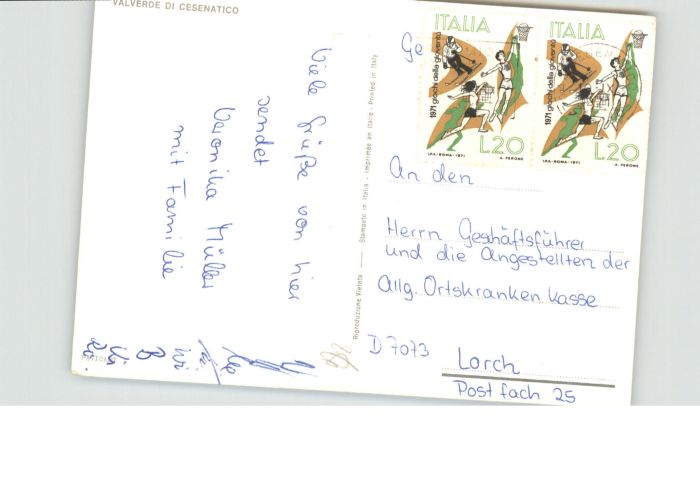 VALVERDE DI CESENATICO
Viele Grüße von hier
sendet
Veronika Müller
mit Familie
Riproduzione Vietata — Stampato in Italia - Imprimée en Italie - Printed in Italy
Ge
ITALIA
1971 giochi della gioventù
L.20
I.P.S.-ROMA-1971
A. PERONE
ITALIA
1971 giochi della gioventù
L.20
I.P.S.-ROMA-1971
A. PERONE
An den
Herrn Geschäftsführer
und die Angestellten der
Allg. Ortskrankenkasse
D 7073 Lorch
Postfach 25